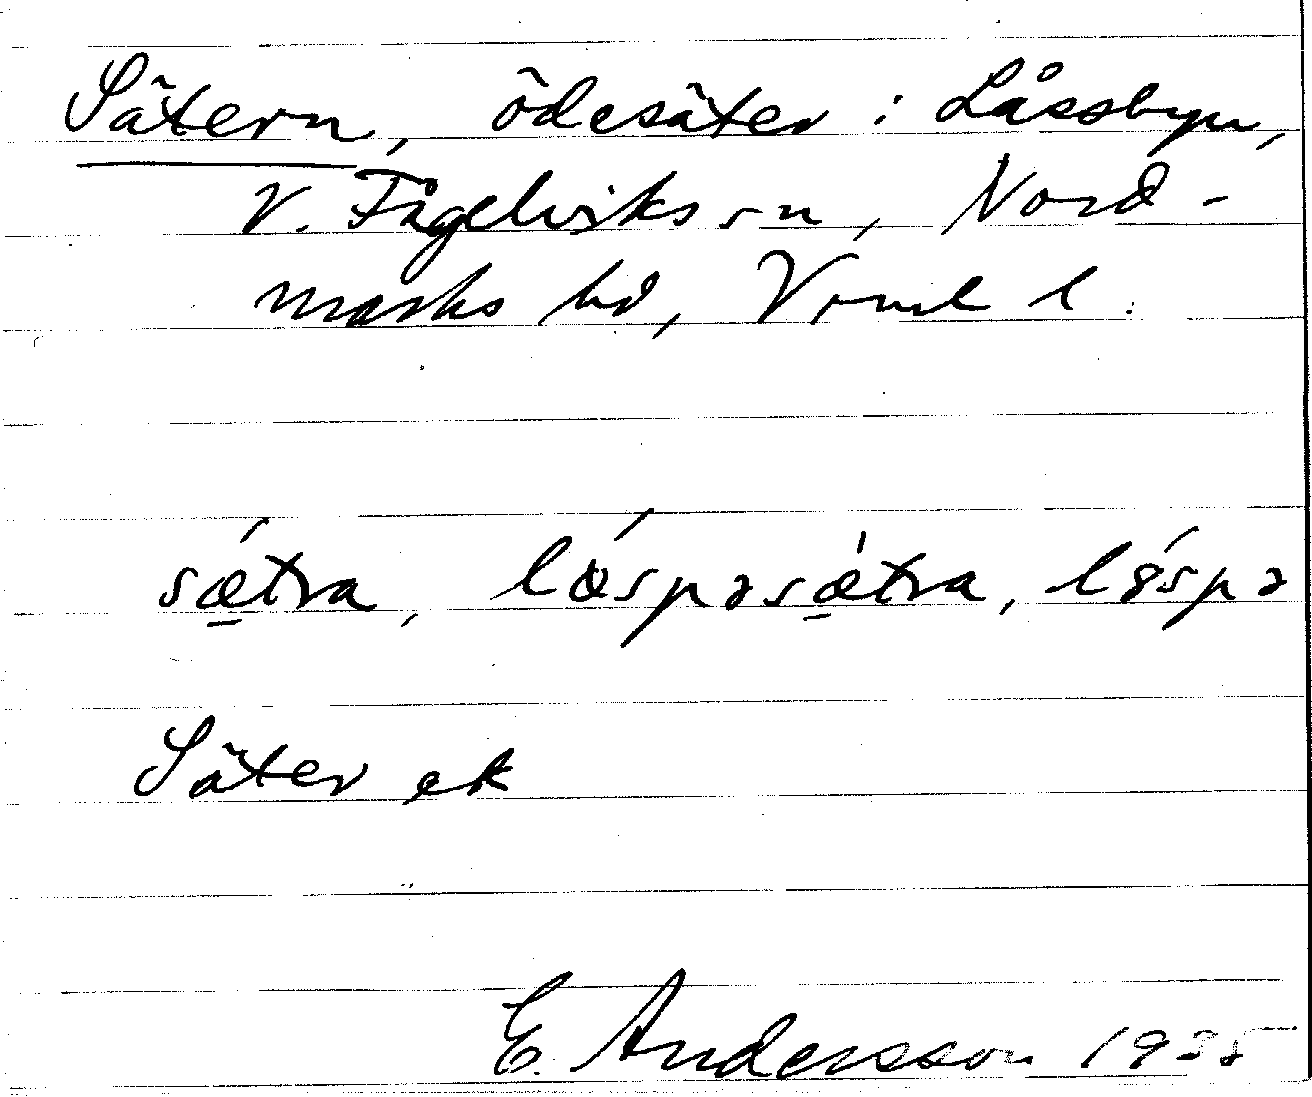 Sätern, ödesäter i Låssbyn,
V. Fågelviks sn, Nord-
marks hd, Vrml l.
sǽtra, lǿspəsǽtra, lǿspə
Säter ek
E. Andersson 1935